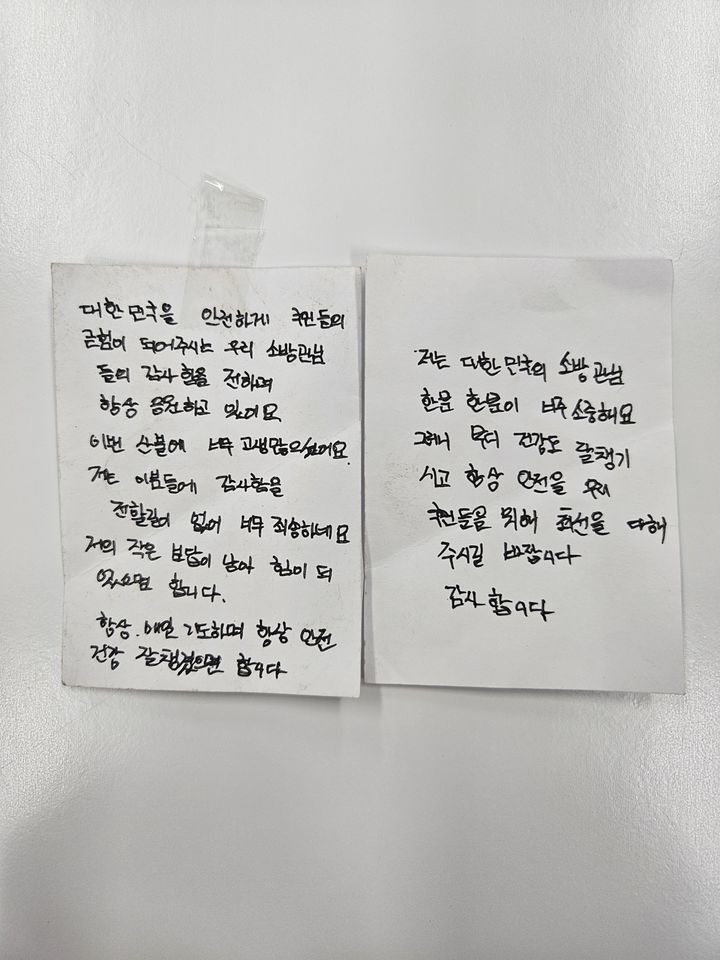 대한민국을 안전하게 국민들의
큰힘이 되어주시는 우리 소방관님
들의 감사함을 전하며
항상 응원하고 있어요
이번 산불에 너무 고생많으셨어요.
저는 이분들에 감사함을
전할길이 없어 너무 죄송하네요
저의 작은 보답이 남아 힘이 되
었으면 합니다.
항상. 매일 기도하며 항상 안전
건강 잘챙겼으면 합니다
저는 대한민국의 소방관님
한분 한분이 너무 소중해요
그러니 부디 건강도 잘챙기
시고 항상 안전을 우리
국민들을 위해 최선을 다해
주시길 바랍니다
감사합니다